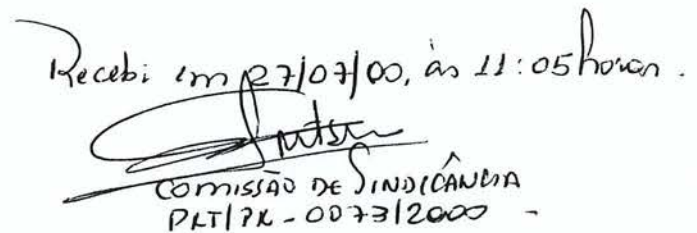 Recebi em 27/07/00, às 11:05 horas.
COMISSÃO DE SINDICÂNCIA
PRT/PR - 0073/2000 -